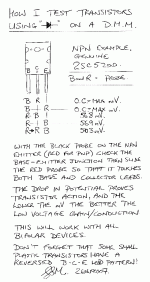 HOW I TEST TRANSISTORS
USING "" ON A D.M.M.
NPN EXAMPLE,
GENUINE
2SC5200.
B C E
B R I
B I R
R B I
R I B
R+R B
O.C = MAX mV.
O.C = MAX mV.
568 mV.
569 mV.
563 mV.
WITH THE BLACK PROBE ON THE NPN
EMITTER (RED FOR PNP) CHECK THE
BASE-EMITTER JUNCTION THEN SLIDE
THE RED PROBE SO THAT IT TOUCHES
BOTH BASE AND COLLECTOR LEADS.
THE DROP IN POTENTIAL PROVES
TRANSISTOR ACTION, AND THE
LOWER THE mV THE BETTER THE
LOW VOLTAGE GAIN/CONDUCTION
THIS WILL WORK WITH ALL
BIPOLAR DEVICES.
DON'T FORGET THAT SOME SMALL
PLASTIC TRANSISTORS HAVE A
REVERSED B-C-E LEAD PATTERN!